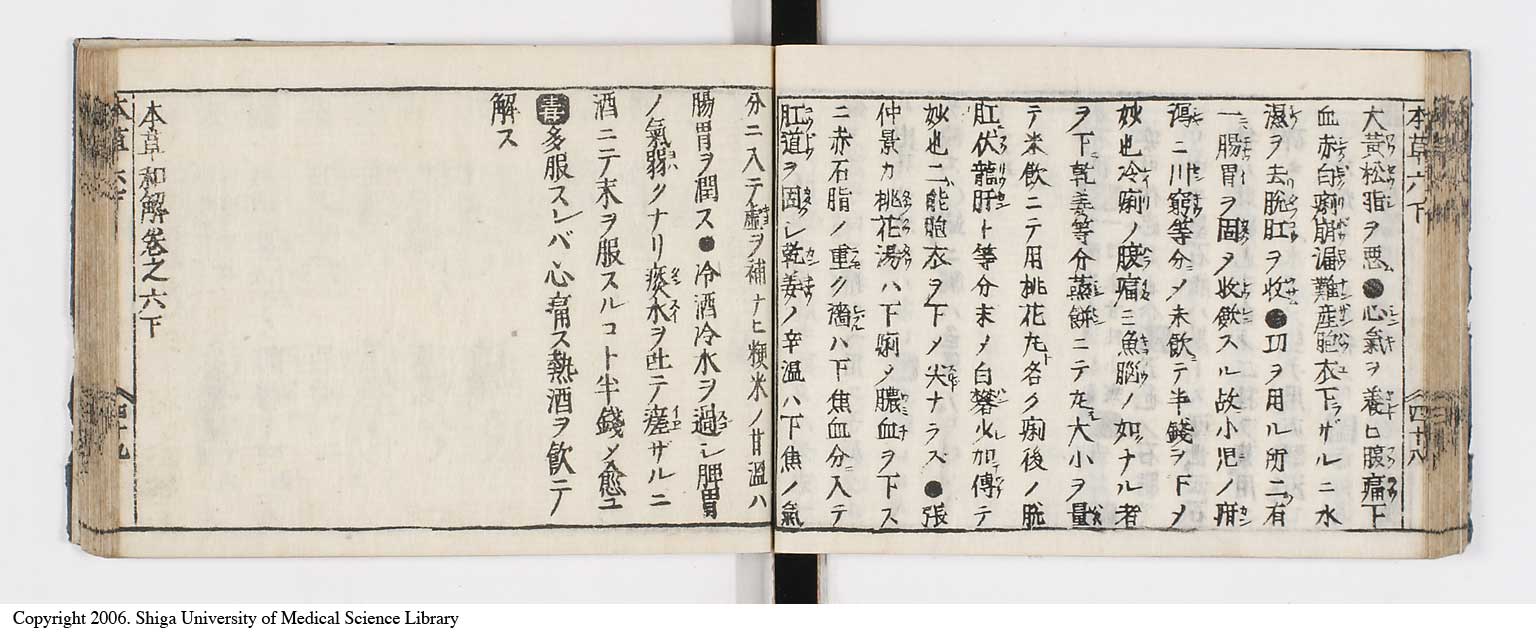 本草六下
四十八
大黃松脂ヲ悪●心氣ヲ養ロ腹痛下
血赤白痢崩漏難産胞衣下ザルニ水
濕ヲ去脫肛ヲ收●功ヲ用ル所二有
一腸胃ヲ固ヲ收斂スル故小児ノ疳
瀉ニ川窮等分メ末飲テ半錢ヲ下メ
妙也冷痢ノ腹痛ニ魚腦ノ如ナル者
ヲ下乾姜等分蒸餅ニテ丸大小ヲ量
テ米飲ニテ用桃花丸ト名ク痢後ノ脫
肛伏龍肝ト等分末メ白礬少加傅テ
妙也二能胞衣ヲ下メ尖ナラス●張
仲景カ桃花湯ハ下痢メ膿血ヲ下ス
ニ赤石脂ノ重ク濇ハ下焦血分ニ入テ
肛道ヲ固シ乾姜ノ辛温ハ下焦ノ氣
分ニ入テ虚ヲ補ナヒ粳米ノ甘温ハ
腸胃ヲ潤ス●冷酒冷水ヲ過シ脾胃
ノ氣弱クナリ痰水ヲ吐テ瘥ザルニ
酒ニテ末ヲ服スルコト半錢メ愈ユ
毒多服スレバ心痛ス熱酒ヲ飲テ
解ス
本草和解巻之六下
本草六下
四十九
Copyright 2006. Shiga University of Medical Science Library